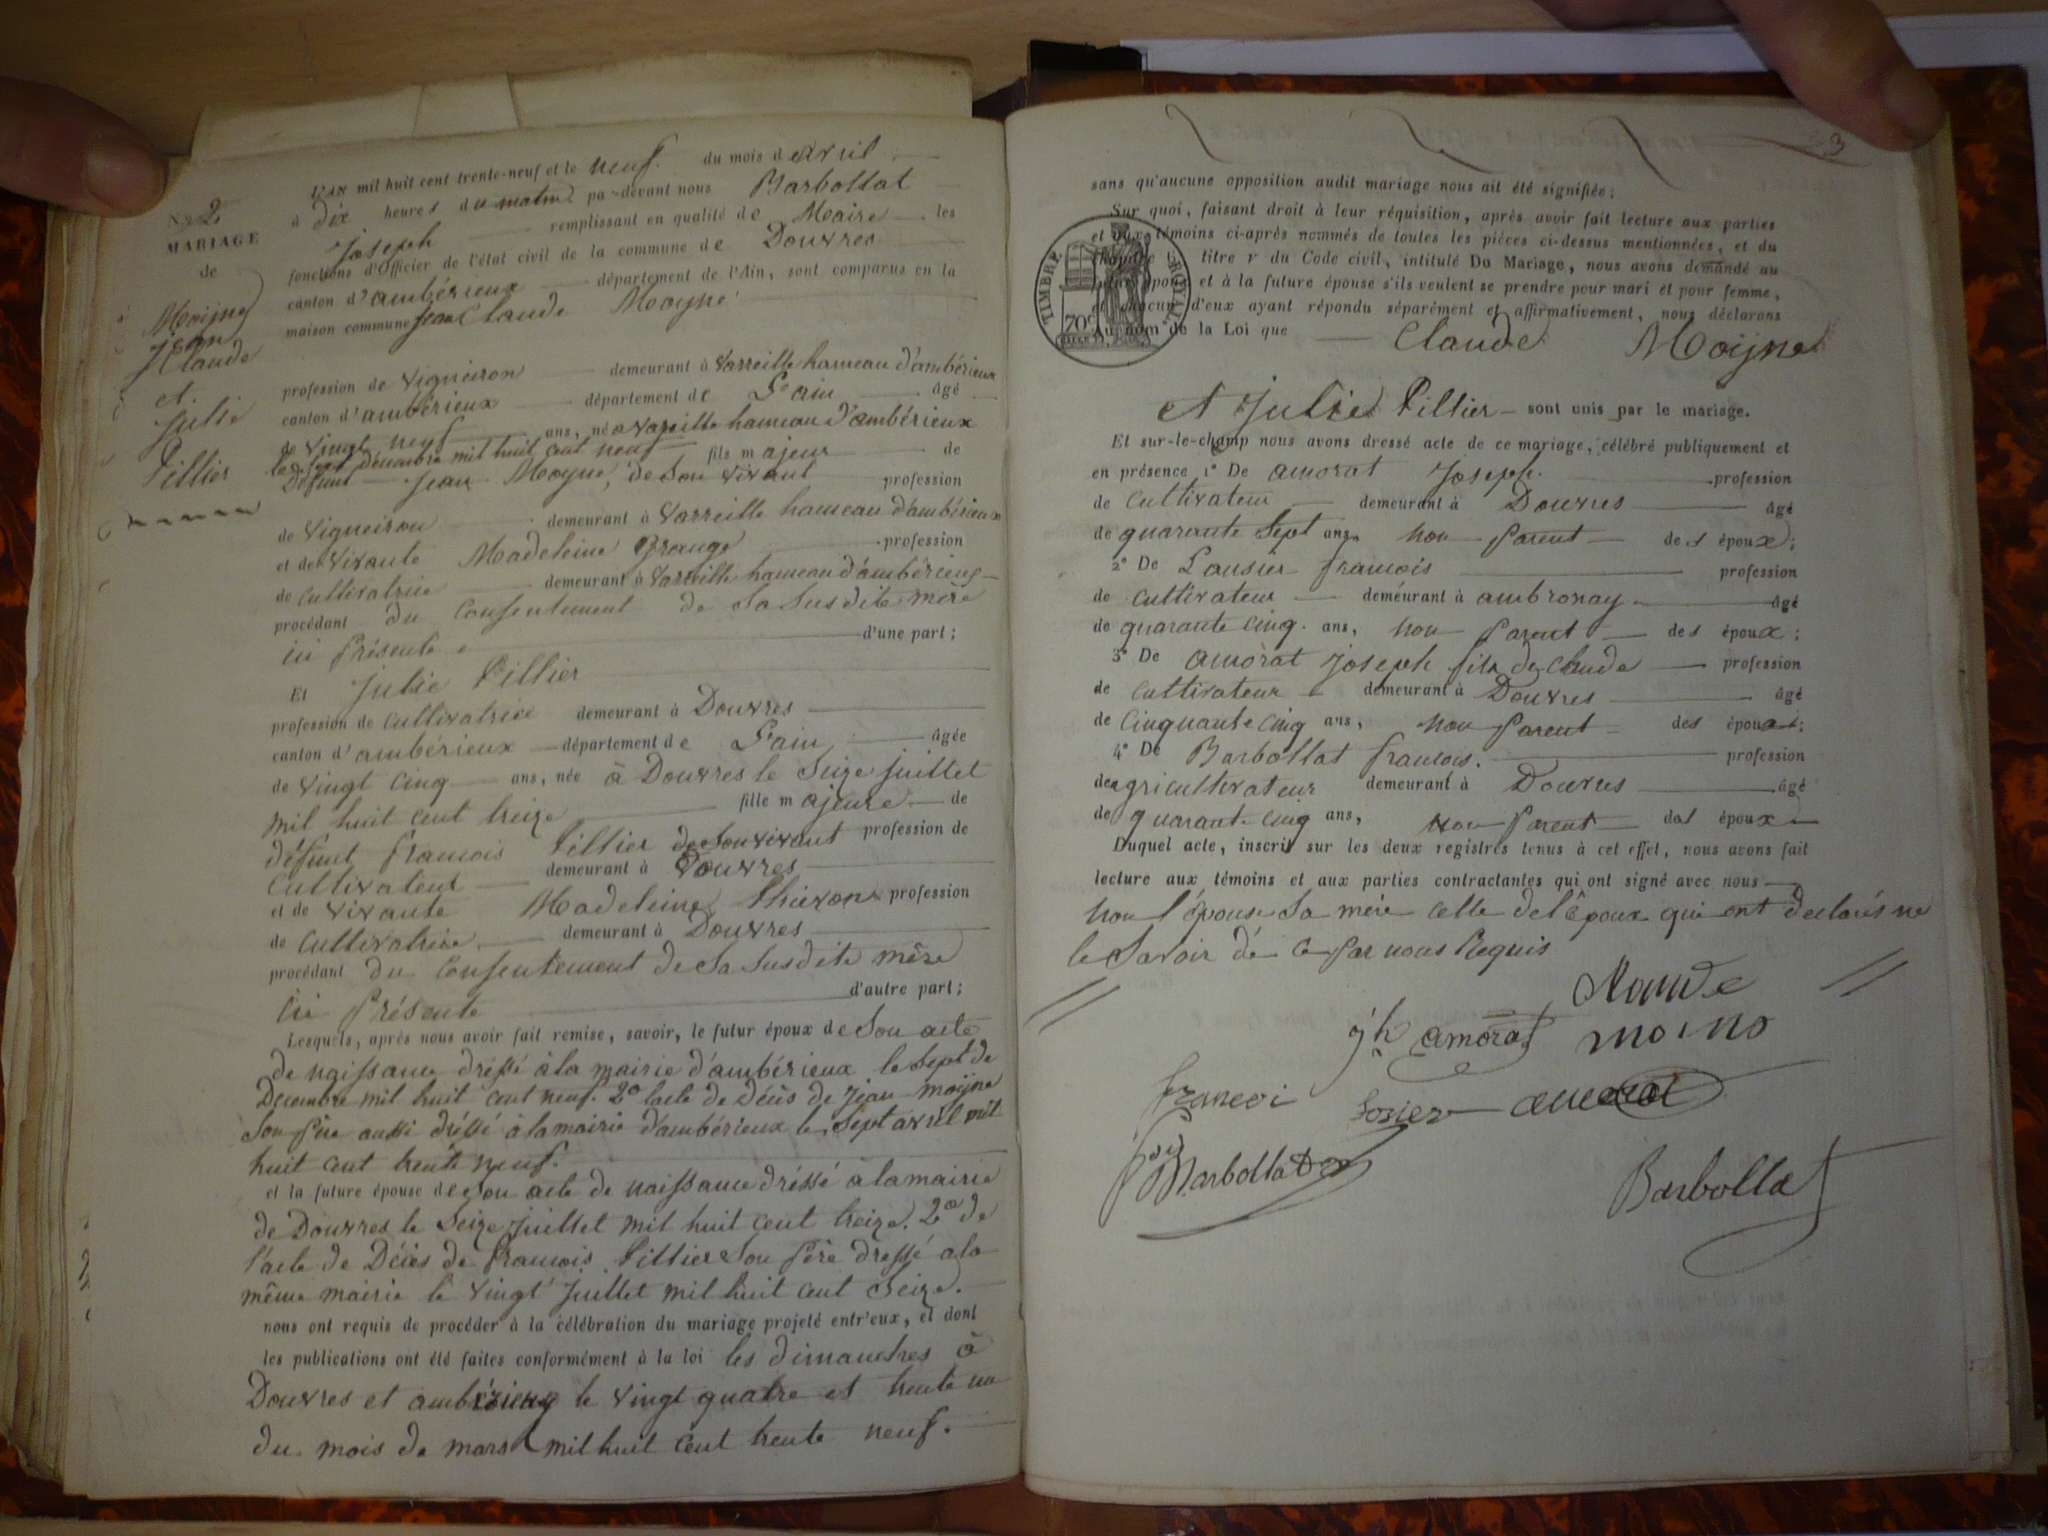 L'an mil huit cent trente-neuf et le neuf. du mois d'avril
à dix heures du matin pa--devant nous Barbollat
Joseph remplissant en qualité de Maire les
fonctions d'Officier de l'état civil de la commune de Douvres
canton d'ambérieux département de l'Ain, sont comparus en la
maison commune jean Claude Moyne
No 2
MARIAGE
de
Moijne
jean
Claude
et
Julie
Pillier
profession de vigneiron demeurant à Varreille hameau d'ambérieux
canton d'ambérieux département de L'ain âgé
de vingt neuf ans, né a Vareille hameau d'ambérieux
le sept décembre mil huit cent neuf fils majeur de
Défunt Jean Moyne, de son vivant profession
de vigneiron demeurant à Varreille hameau d'ambérieux
et de vivante Madeleine Grange profession
de cultivatrice demeurant à Varreille hameau d'ambérieux
procédant du Consentement de Sa Susdite mère
ici présente d'une part;
Et Julie Pillier
profession de cultivatrice demeurant à Douvres
canton d'ambérieux département de L'ain âgée
de vingt cinq ans, née à Douvres le Seize juillet
mil huit cent treize fille majeure de
défunt françois Pillier de Son vivant profession de
Cultivateur demeurant à Douvres
et de vivante Madeleine profession
de cultivatrice demeurant à Douvres
procédant du Consentement de Sa Susdite mère
ici présente d'autre part;
Lesquels, après nous avoir fait remise, savoir, le futur époux de Son acte
de naissance dréssé à la mairie d'ambérieux le Sept de
Décembre mil huit cent neuf. 2o l'acte de décès de jean moijne
Son père aussi dréssé à la mairie d'ambérieux le Sept avril mil
huit cent trente neuf.
et la future épouse de Son acte de naissance dréssé à la mairie
de Douvres le Seize juillet mil huit cent treize. 2o de
l'acte de Décès de françois Pillier Son père dressé a la
même mairie le vingt juillet mil huit cent Seize.
nous ont requis de procéder à la célébration du mariage projeté entr'eux, et dont
les publications ont été faites conformément à la loi les dimanches à
Douvres et ambérieux le vingt quatre et trente un
du mois de mars mil huit cent trente neuf.
3
sans qu'aucune opposition audit mariage nous ait été signifiée;
Sur quoi, faisant droit à leur réquisition, après avoir fait lecture aux parties
et aux témoins ci-après nommés de toutes les pièces ci-dessus mentionnées, et du
chapitre titre v du Code civil, intitulé Du Mariage, nous avons demandé au
futur époux et à la future épouse s'ils veulent se prendre pour mari et pour femme,
et chacun d'eux ayant répondu séparément et affirmativement, nous déclarons
Au nom de la Loi que Claude Moijne
TIMBRE ROYAL
70c
et Julie Pillier sont unis par le mariage.
Et sur-le-champ nous avons dressé acte de ce mariage, célébré publiquement et
en présence 1o De amorat Joseph. profession
de Cultivateur demeurant à Douvres âgé
de quarante Sept ans. non parent des époux;
2o De Lausier francois profession
de Cultivateur demeurant à ambronay âgé
de quarante cinq. ans, non parent des époux;
3o De amorat Joseph fils de claude profession
de Cultivateur demeurant à Douvres âgé
de cinquante cinq ans, non parent des époux;
4o De Barbollat francois. profession
de agricultivateur demeurant à Douvres âgé
de quarante cinq ans, non parent des époux
Duquel acte, inscrit sur les deux registres tenus à cet effet, nous avons fait
lecture aux témoins et aux parties contractantes qui ont signé avec nous
non l'épouse Sa mère celle de l'époux qui ont declarés ne
le Savoir de ce par nous Requis
Claude
jh amorat moino
francoi losier amorat
Barbollat
Barbollat